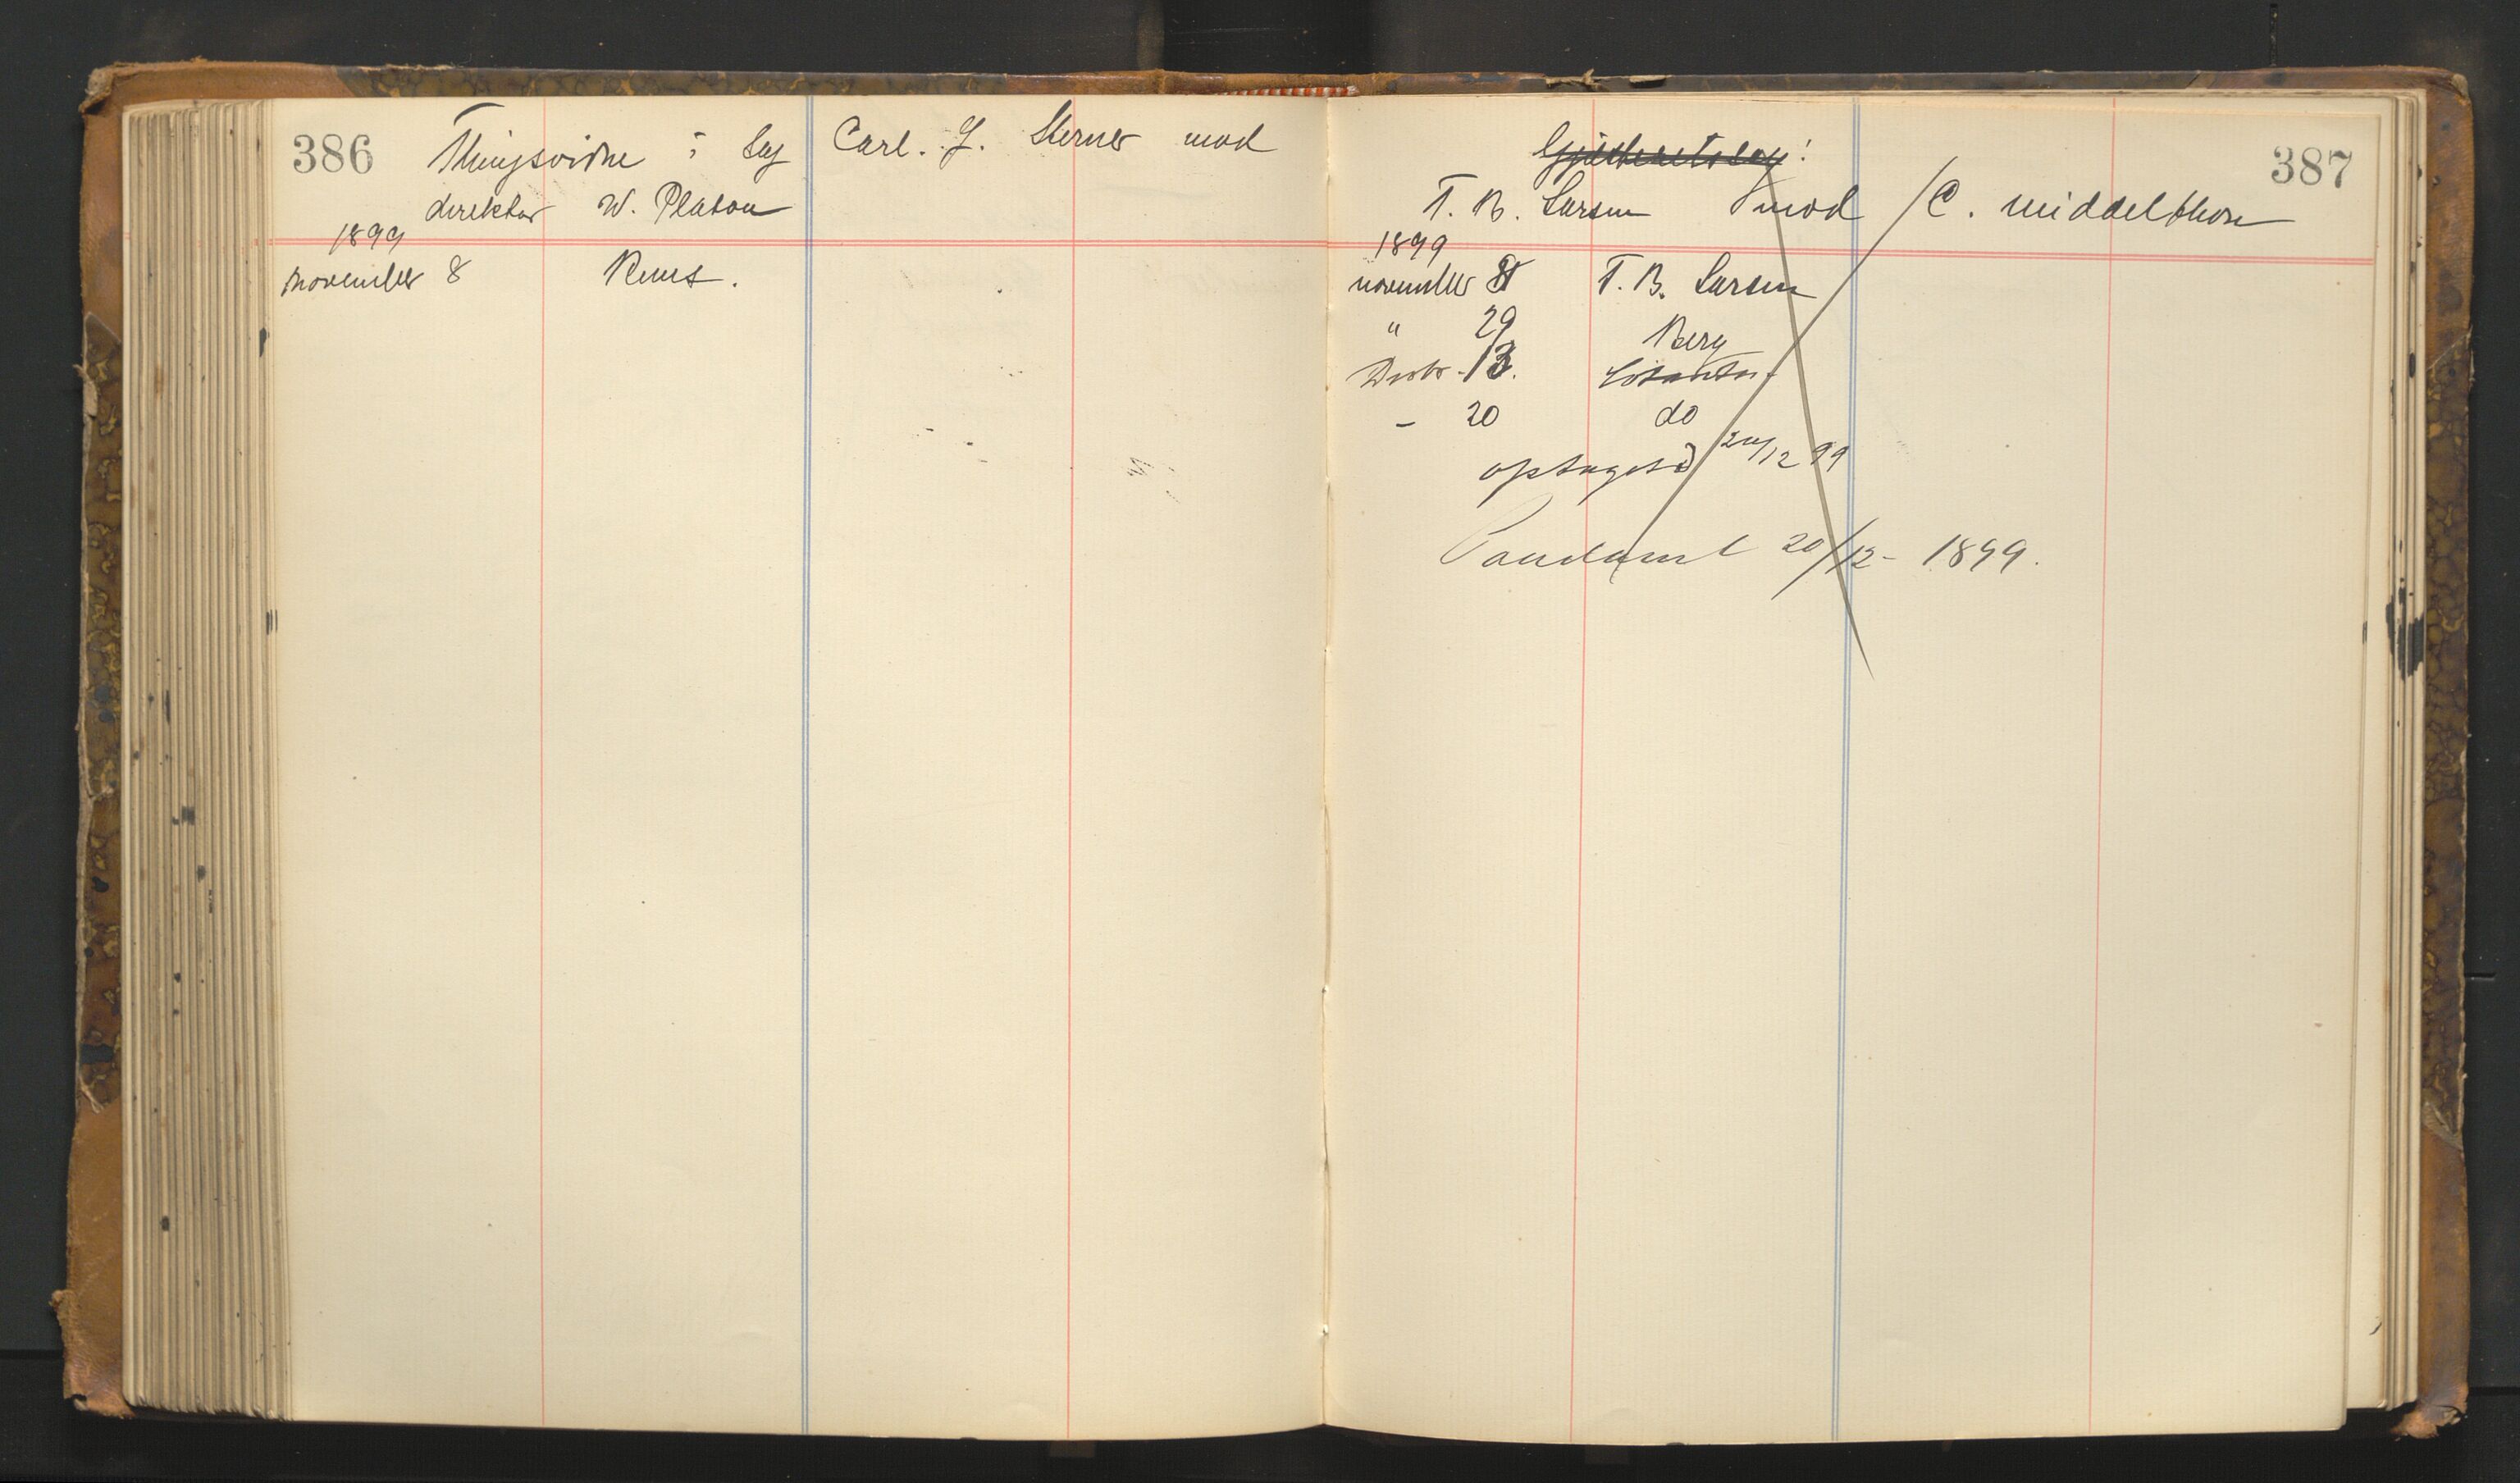 386
Thingsvidne i Sag Carl. J. Sterner mod
direktør W. Platou
1899
november 8 Reuss.
387
Gjæsteretssag:
T. B. Larsen mod C. Middelthon
1899
november 8 T. B. Larsen
" 29 Berg
Decbr. 13.
- 20 do
optaget 20/12 99
Paadømt 20/12 - 1899.